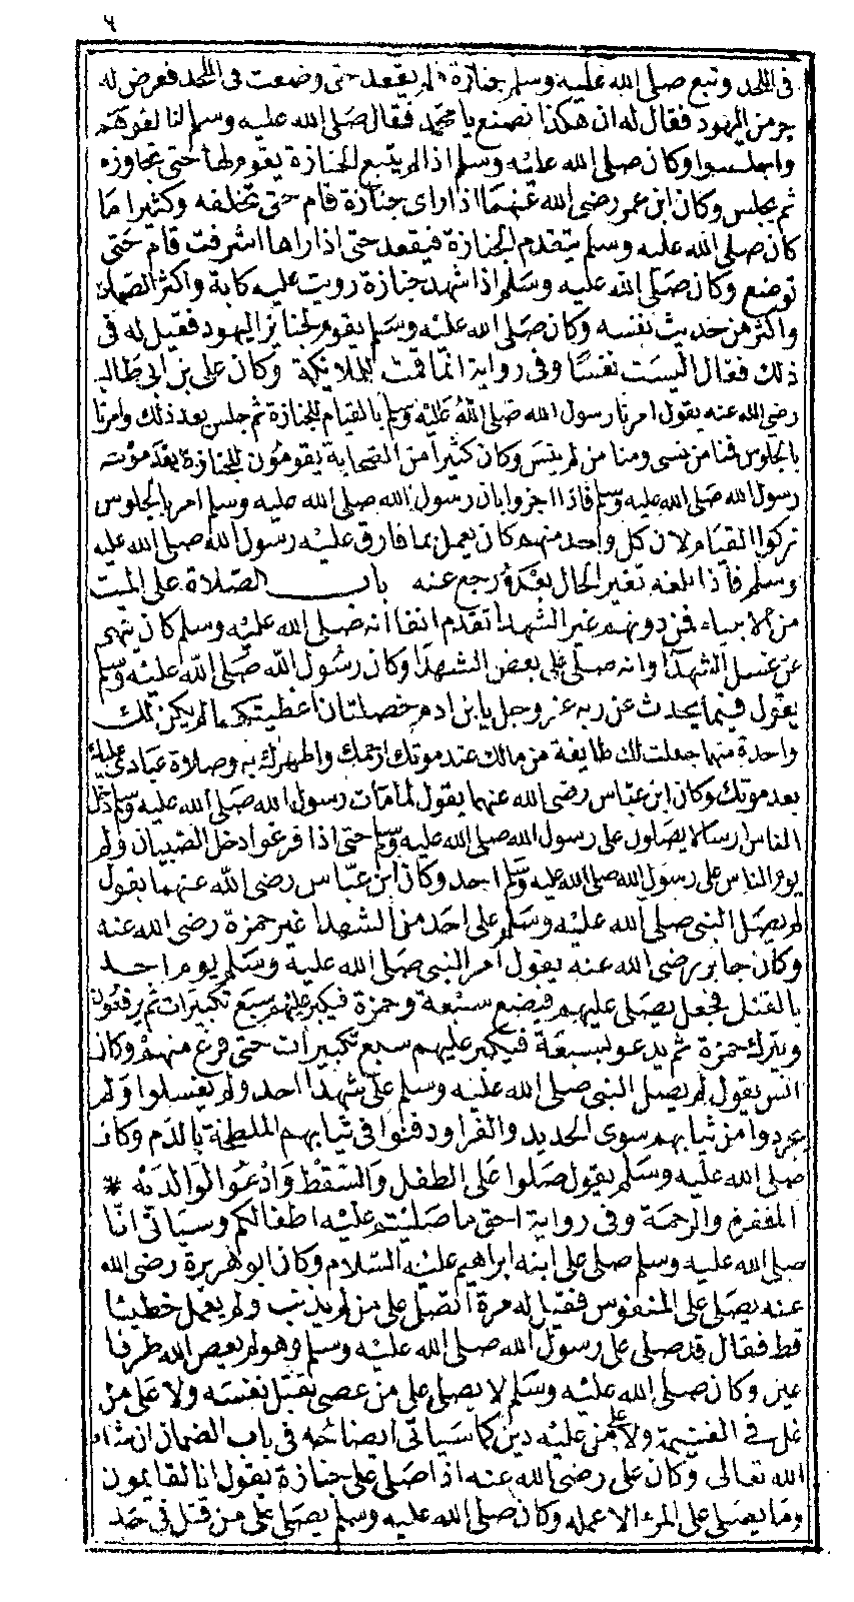 في اللحد وتبع صلى الله عليه وسلم جنازة فلم يقعد حتى وضعت في اللحد فعرض له
حبر من اليهود فقال له ان هكذا نصنع يا محمد فقال صلى الله عليه وسلم لنا
واجلسوا وكان صلى الله عليه وسلم اذا لم يتبع الجنازة يقوم لها حتى تجاوزه
ثم يجلس وكان ابن عمر رضى الله عنهما اذا راى جنازة قام حتى تخلفه وكثيرا ما
كان صلى الله عليه وسلم يتقدم الجنازة فيقعد حتى اذا راها اشرفت قام حتى
توضع وكان صلى الله عليه وسلم اذا شهد جنازة رويت عليه كابة واكثر الصمات
واكثر من حديث نفسه وكان صلى الله عليه وسلم يقوم لجنايز اليهود فقيل له في
ذلك فقال اليست نفسا وفي رواية انما قمت للملائكة وكان على بن ابى طالب
رضى الله عنه يقول امرنا رسول الله صلى الله عليه وسلم بالقيام للجنازة ثم جلس بعد ذلك وامرنا
بالجلوس فمنا من نسى ومنا من لم ينس وكان كثيرا من الصحابة يقومون للجنازة بعد موته
رسول الله صلى الله عليه وسلم فاذا اخبروا بان رسول الله صلى الله عليه وسلم امر بالجلوس
تركوا القيام لان كل واحد منهم كان يعمل بما فارق عليه رسول الله صلى الله عليه
وسلم فاذا بلغه تغير الحال بعده رجع عنه باب الصلاة على الميت
من الانبياء فمن دونهم غير الشهدا تقدم انفا انه صلى الله عليه وسلم كان نهى
عن غسل الشهدا وانه صلى على بعض الشهدا وكان رسول الله صلى الله عليه وسلم
يقول فيما يحدث عن ربه عز وجل يا بن ادم خصلتان اعطيتكهما لم يكن لك
واحدة منهما جعلت لك طايفة من مالك عند موتك ارحمك واطهرك به وصلاة عبادى عليك
بعد موتك وكان ابن عباس رضى الله عنهما يقول لما مات رسول الله صلى الله عليه وسلم ادخل
الناس ارسالا يصلون على رسول الله صلى الله عليه وسلم حتى اذا فرغوا ادخل الصبيان ولم
يوم الناس على رسول الله صلى الله عليه وسلم احد وكان ابن عباس رضى الله عنهما يقول
لم يصل النبى صلى الله عليه وسلم على احد من الشهدا غير حمزة رضى الله عنه
وكان جابر رضى الله عنه يقول امر النبى صلى الله عليه وسلم يوم احد
بالقتلى فجعل يصلى عليهم فيضع سبعة وحمزة فيكبر عليهم سبع تكبيرات ثم يرفعون
ويترك حمزة ثم يدعو بسبعة فيكبر عليهم سبع تكبيرات حتى فرغ منهم وكان
انس يقول لم يصل النبى صلى الله عليه وسلم على شهدا احد ولم يغسلوا ولم
يجردوا من ثيابهم سوى الحديد والفرا ودفنوا في ثيابهم الملطخة بالدم وكان
صلى الله عليه وسلم يقول صلوا على الطفل والسقط وادعوا لوالديه *
المغفرة والرحمة وفى رواية احق ما صليتم عليه اطفالكم وسياتى انا
صلى الله عليه وسلم صلى على ابنه ابراهيم عليه السلام وكان ابو هريرة رضى الله
عنه يصلى على المنفوس فقيل له مرة اتصلى على من لم يذنب ولم يعمل خطيئا
قط فقال قد صلى على رسول الله صلى الله عليه وسلم وهو لم يعص الله طرفا
عين وكان صلى الله عليه وسلم لا يصلى على من عصى بقتل نفسه ولا على من
غل في الغنيمة ولا على من عليه دين كما سياتى ايضاحه في باب الضمان ان شاء
الله تعالى وكان على رضى الله عنه اذا صلى على جنازة يقول انا لقايمون
وما يصلى على المرء الا عمله وكان صلى الله عليه وسلم يصلى على من قتل في حد